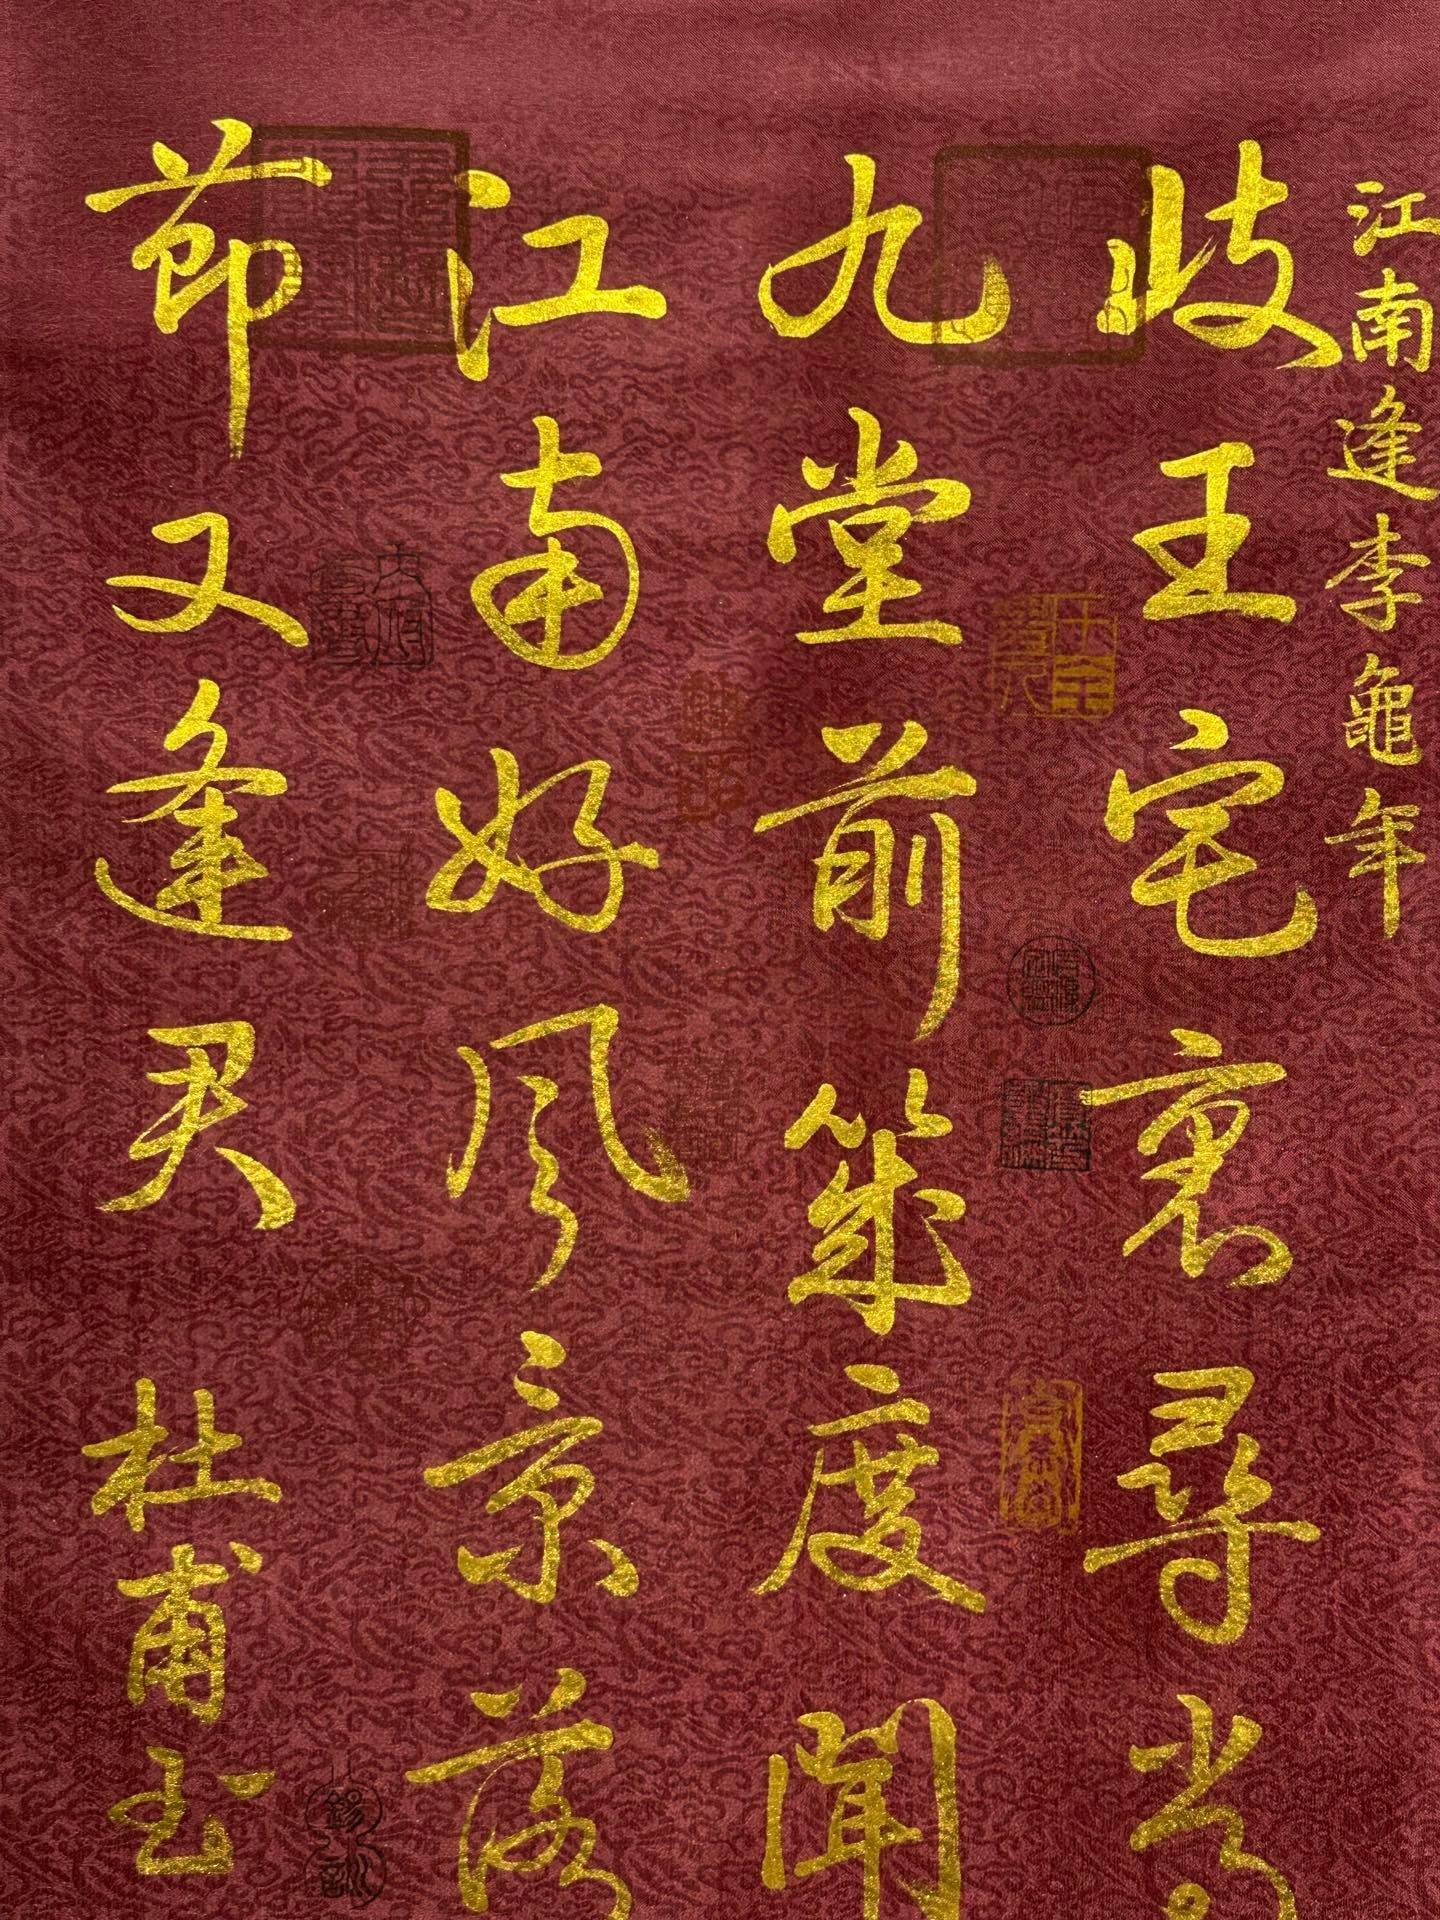 江南逢李龜年
歧王宅裏尋常
九堂前幾度聞
江南好風景落
節又逢君
杜甫